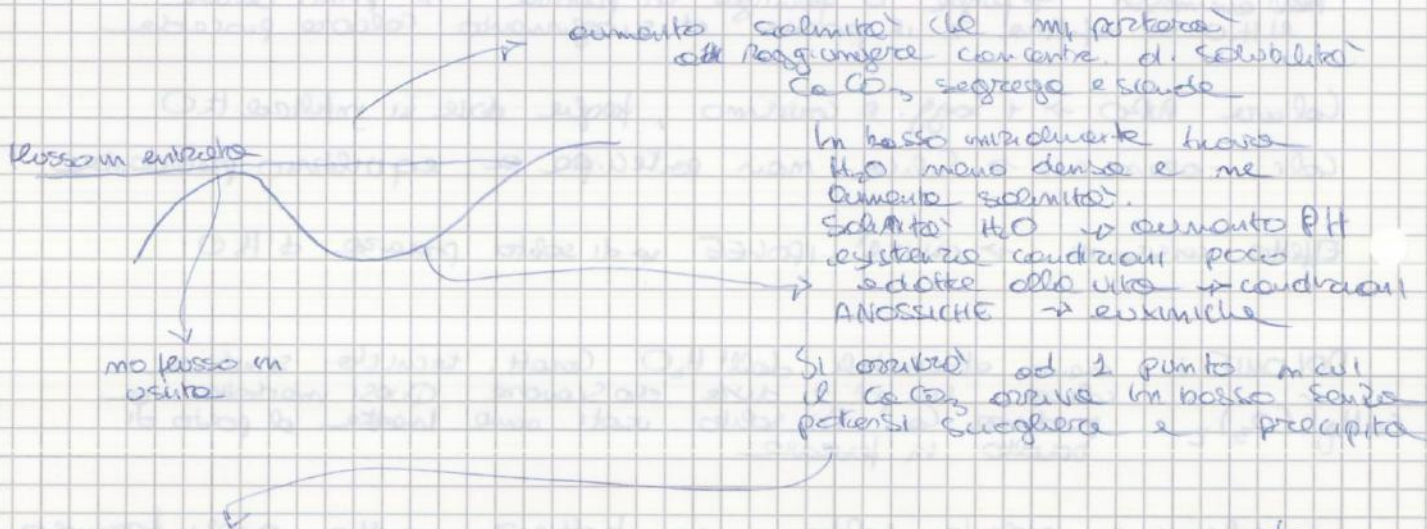 aumento salinità che mi porterà
a raggiungere concentr. di solubilità
CaCO3 segrego e scende
flusso in entrata
In basso inizialmente trova
H2O meno densa e ne
aumenta salinità.
Salinità H2O → aumento PH
esistenza condizioni poco
adatte alla vita → condizioni
ANOSSICHE → euxiniche
no flusso in
uscita
Si arriverà ad 1 punto in cui
il CaCO3 arriva in basso senza
potersi sciogliere e precipita